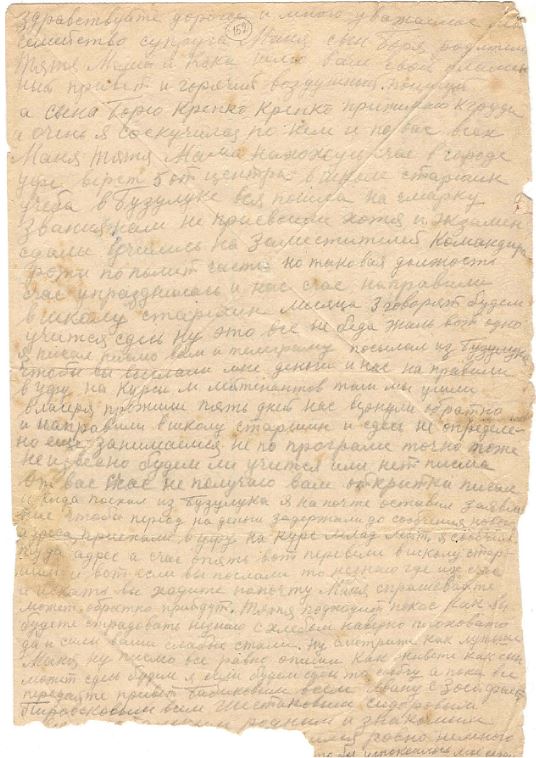 Здравствуйте дорогая и много уважаемая
семейство супруга Маня сын Боря родители
тятя Мама и пока шлю вам свой пламен
ный привет и горячий воздушный поцелуй
159
а сына Борю Крепко Крепко прижимаю к груди
и очень я соскучился по нем и по вас всех
Маня тятя Мама нахожусь счас в городе
уфе верст 5 от центра в школе старшин
учеба в Бузулуке вся пошла на смарку
звания нам не присвоили хотя и экзамен
сдали учились на Заместителей Командира
роты по полит части но таковая должность
счас упразднилась и нас счас направили
в школу старшин месяца 3 говорят будем
учится сдесь ну это все не беда жаль вот одно
я писал письмо вам и телеграму посылал из Бузулука
чтобы вы выслали мне деньги и нас на правили
в уфу на Курсы М лейтенантов там мы
в лагеря прожили пять дней нас вернули обратно
и направили в школу старшин и сдесь не определе-
но еще занимаемся не по програме точно тоже
не извесно будем ли учится или нет письма
от вас счас не получаю вам открытки писал
и когда поехал из Бузулука я на почте оставил заявле
ние чтобы перевод на деньги задержали до сообщения нового
адреса приехали в уфу на курс млад лейт. я сообщил
туда адрес а счас опять вот перевели в школу стар-
шин и вот если вы послали то незнаю где их счас
и искать вы ходите на почту Маня спрашевайте
может обратно придут. Тятя подходит покос Как вы
будете страдовать незнаю с хлебом наверно плоховато
да и сили ваши слабые стали. Ну смотрите как лутьше
Маня ну письмо все равно пиши как живете как сын
может сдесь будем я если будем сдесь то сообчу а пока всё
передайте привет бабиковым всем Ивану с Зоей
Пировсковым всем Шестаковым сидоровым
родным и знакомым
ровно немного